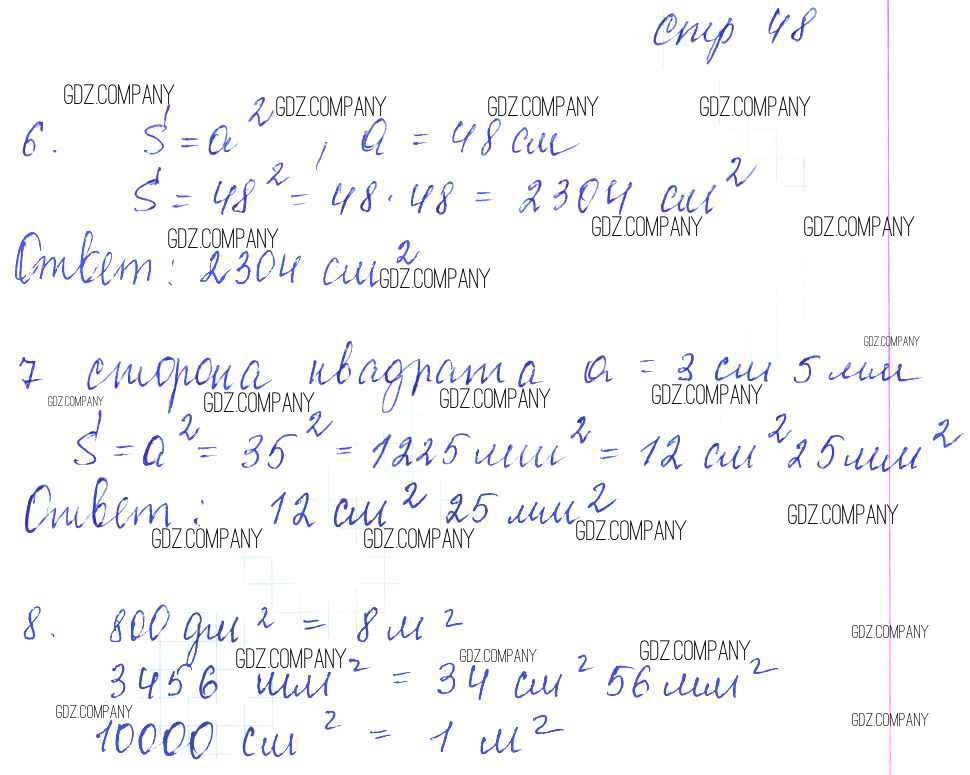 стр 48
GDZ.COMPANY
GDZ.COMPANY GDZ.COMPANY GDZ.COMPANY
6. S = a², a = 48 см
S = 48² = 48 · 48 = 2304 см²
GDZ.COMPANY GDZ.COMPANY
GDZ.COMPANY
Ответ: 2304 см²
GDZ.COMPANY
GDZ.COMPANY
7 сторона квадрата a = 3 см 5 мм
GDZ.COMPANY GDZ.COMPANY GDZ.COMPANY GDZ.COMPANY
S = a² = 35² = 1225 мм² = 12 см² 25 мм²
Ответ: 12 см² 25 мм²
GDZ.COMPANY
GDZ.COMPANY GDZ.COMPANY GDZ.COMPANY
8. 800 дм² = 8 м²
GDZ.COMPANY
GDZ.COMPANY GDZ.COMPANY GDZ.COMPANY
3456 мм² = 34 см² 56 мм²
GDZ.COMPANY GDZ.COMPANY
10000 см² = 1 м²